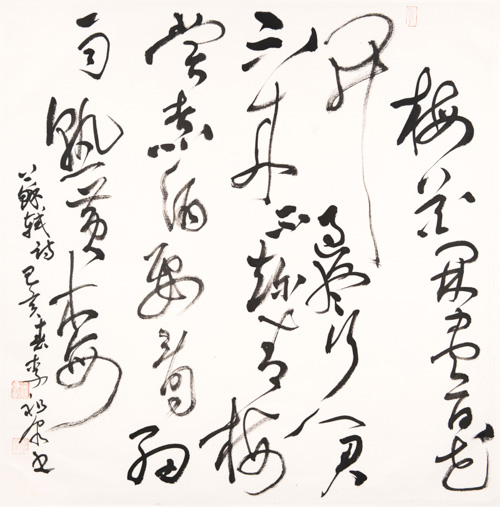 梅花開盡百花
開過盡行人君
不來不趁青梅
嘗煮酒要看細
雨熟黄梅
蘇軾詩己亥春李书